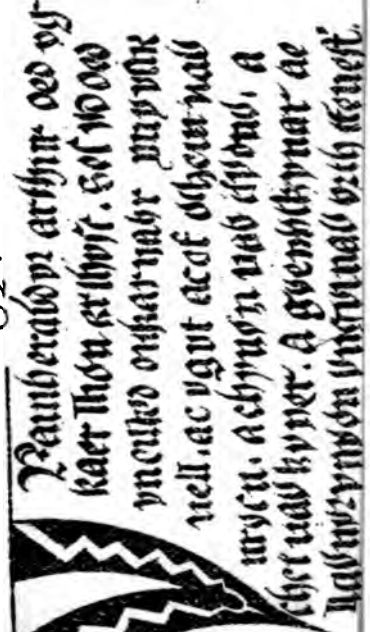 Yr amheraỽdyr arthur oed yg
kaer llion ar ỽysc. Sef yd oed
yn eisted diwarnaỽt yn y ysta
uell. ac y gyt ac ef owein uab
uryen. a chynon uab clydno. a
chei uab kyner. a gwenhỽyuar ae
llaỽuorynyon yn gỽniaỽ ỽrth ffenestr.